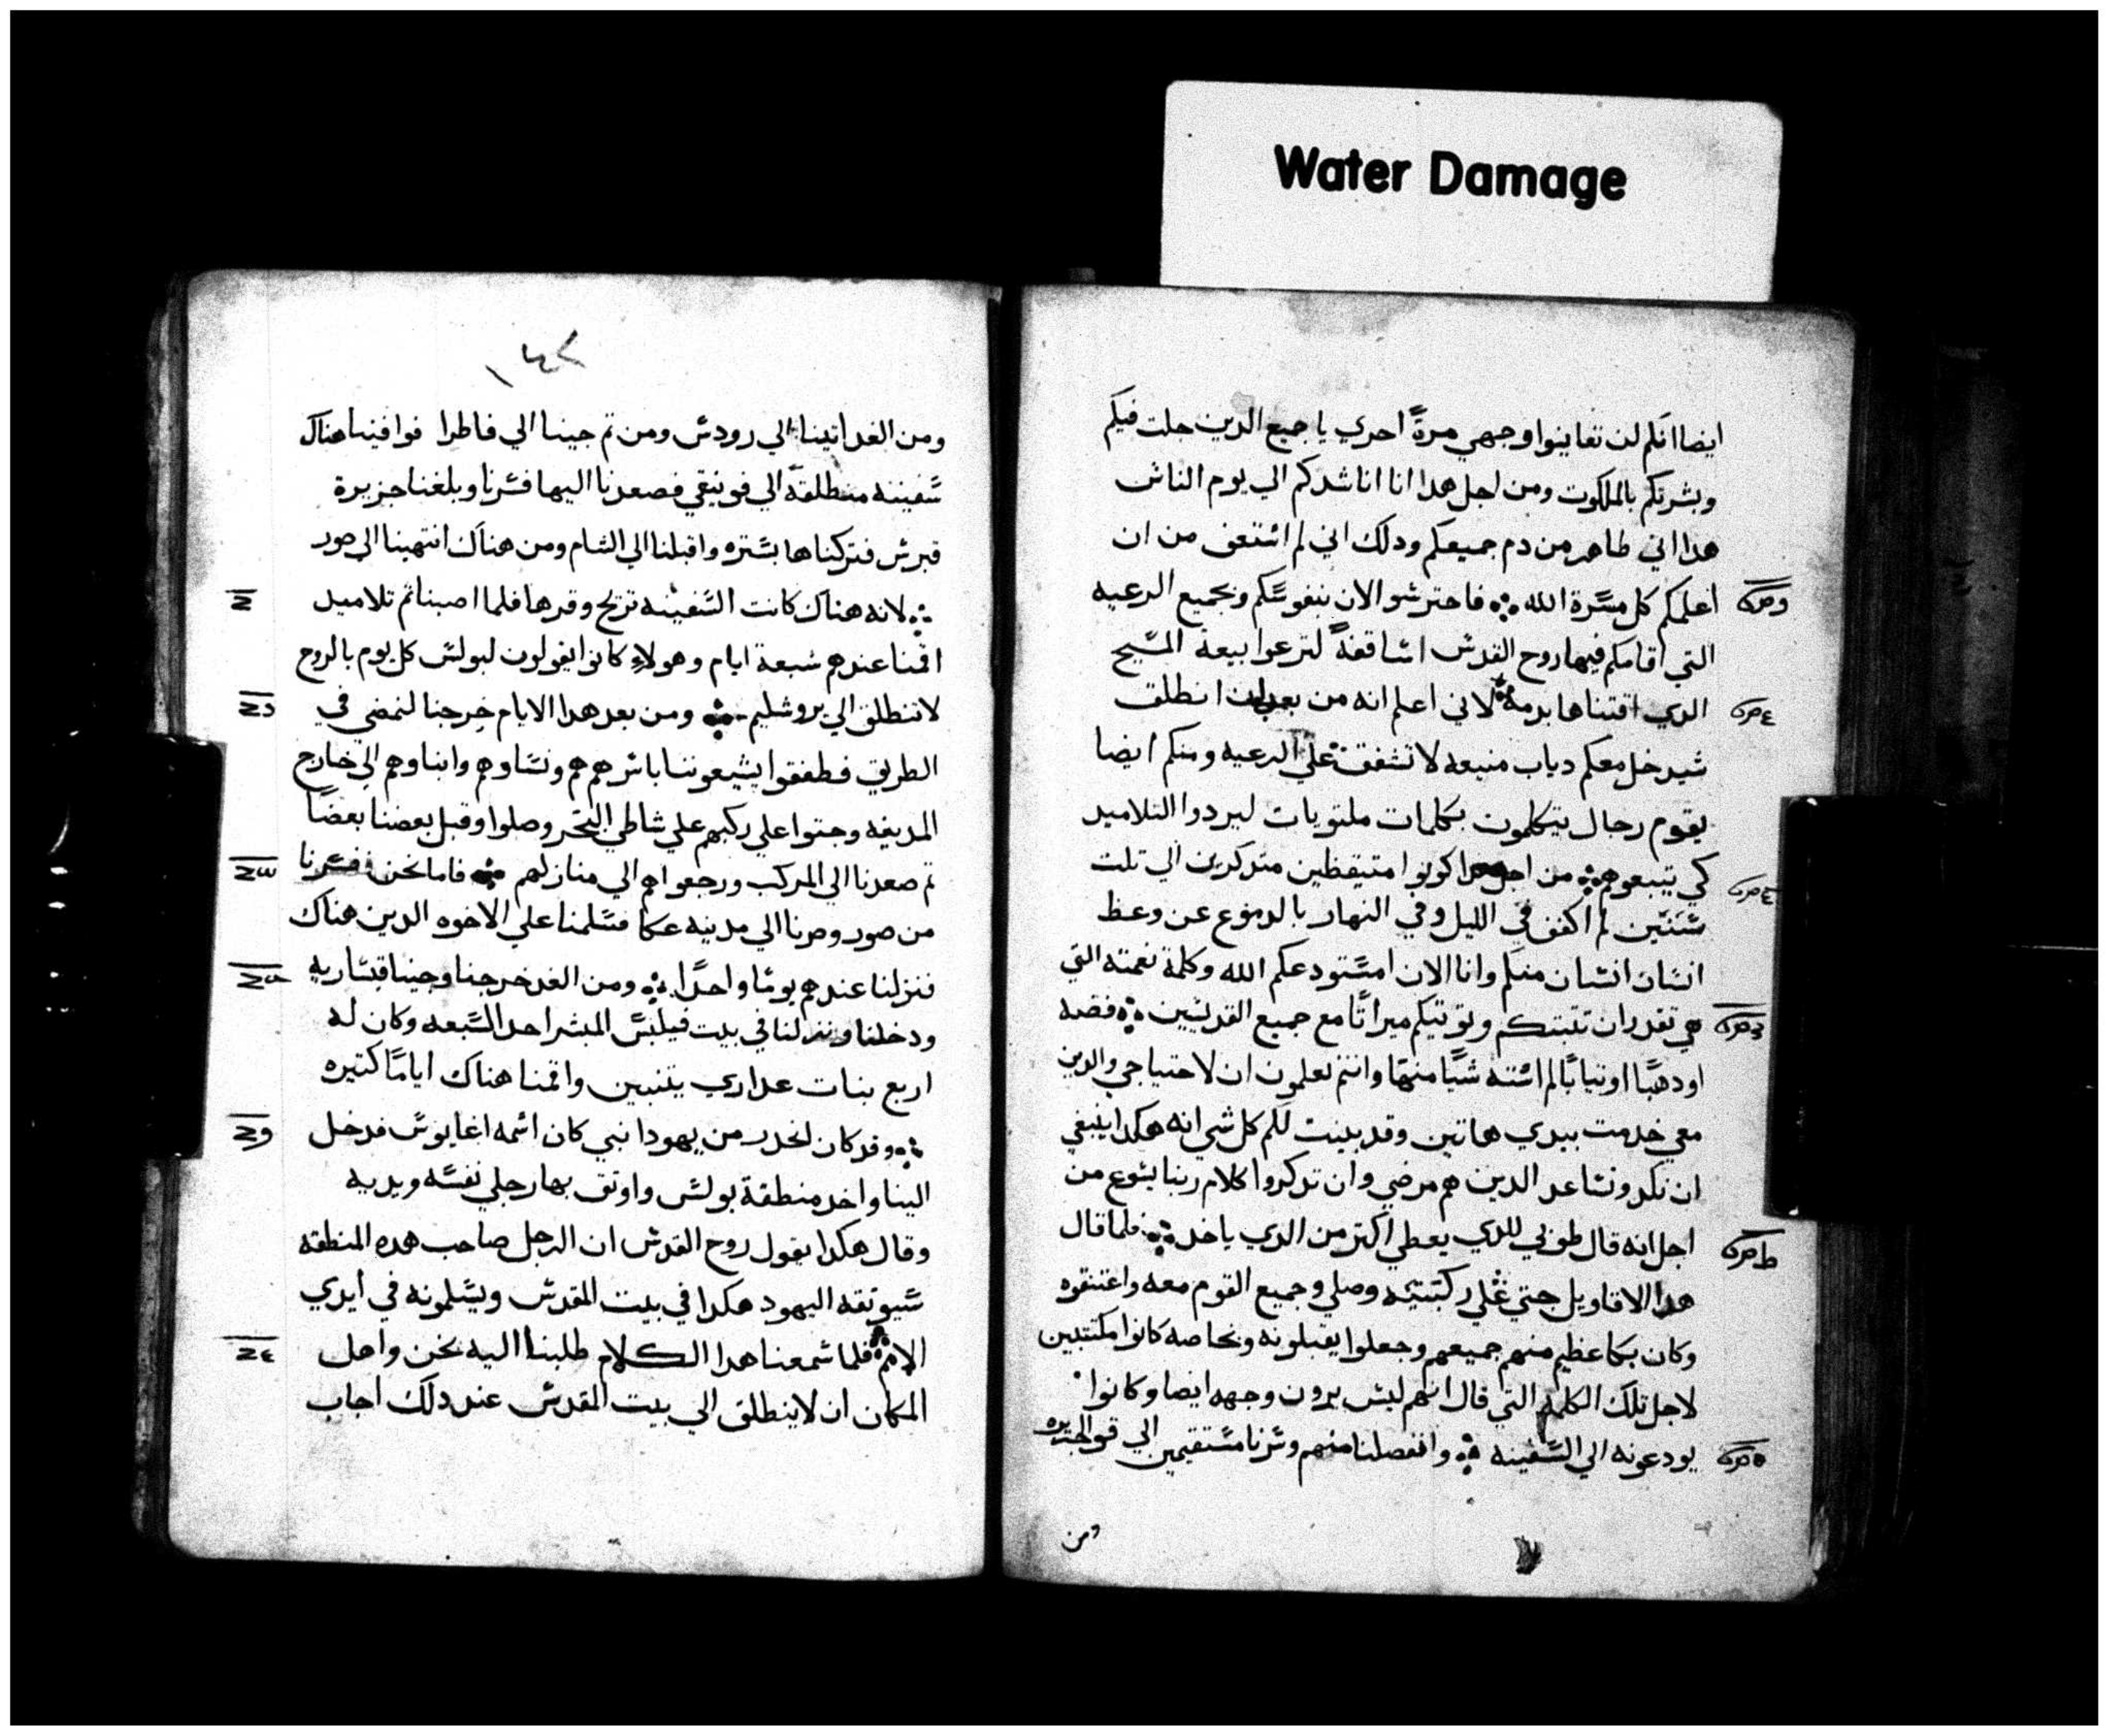 Water Damage
ايضا انكم لن تعاينوا وجهي مرةً اخري يا جميع الدين جلت فيكم
وبشرتكم بالملكوت ومن اجل هدا انا اناشدكم الي يوم الناس
هدا اني طاهر من دم جميعكم ودلك اني لم استعف من ان
اعلمكم كل مسرة الله فاحترسوا الان بنفوسكم وبجميع الرعيه
التي اقامكم فيها روح القدس اساقفةً لترعوا بيعة المسيح
الدي اقتناها بدمه لاني اعلم انه من بعد ان انطلق
سيدخل معكم دياب منيعه لا تشفق علي الرعيه ومنكم ايضا
يقوم رجال يتكلمون بكلمات ملتويات ليردوا التلاميد
كي يتبعوهم من اجل هدا كونوا متيقظين متدكرين اني تلت
سنين لم اكفف في الليل وفي النهار بالدموع عن وعظ
انسان انسان منكم وانا الان استودعكم الله وكلمة نعمته التي
هي تقدر ان تتبتكم وتوتيكم ميراتًا مع جميع القديسين فضه
او دهبًا او تيابًا لم اشته شيًا منها وانتم تعلمون ان لاحتياجي والدين
معي خدمت يدي هاتين وقد بينت لكم كل شي انه هكدا ينبغي
ان نكد ونساعد الدين هم مرضي وان تدكروا كلام ربنا يسوع من
اجل انه قال طوبي للدي يعطي اكتر من الدي ياخد فلما قال
هدا الاقاويل جتي علي ركبتيه وصلي وجميع القوم معه واعتنقوه
وكان بكا عظيم منهم جميعهم وجعلوا يقبلونه وبخاصه كانوا مكتئبين
لاجل تلك الكلمه التي قال انهم ليس يرون وجهه ايضا وكانوا
يودعونه الي السفينه وانفصلنا منهم وسرنا مستقيمين الي قو الجزيره
ومن
١٤٢
ومن الغد اتينا الي رودس ومن تم جينا الي فاطرا فوافينا هناك
سفينه منطلقة الي فونيقي فصعدنا اليها فسرنا وبلغنا جزيرة
قبرس فتركناها يسره واقبلنا الي الشام ومن هناك انتهينا الي صور
لانه هناك كانت السفينه تريح وقرها فلما اصبنا تم تلاميد
اقمنا عندهم سبعة ايام وهولاء كانوا يقولون لبولس كل يوم بالروح
لا تنطلق الي يروشليم ومن بعد هدا الايام خرجنا لنمضي في
الطريق فطفقوا يشيعوننا باسرهم هم ونساوهم وابناوهم الي خارج
المدينه وجتوا علي ركبهم علي شاطي البحر وصلوا وقبل بعضنا بعضًا
تم صعدنا الي المركب ورجعوا هم الي منازلهم فاما نحن فسرنا
من صور وصرنا الي مدينه عكا فسلمنا علي الاخوه الدين هناك
فنزلنا عندهم يومًا واحدًا ومن الغد خرجنا وجينا قيساريه
ودخلنا ونزلنا في بيت فيلبس المبشر احد السبعه وكان له
اربع بنات عداري يتنبين واقمنا هناك ايامًا كتيره
وقد كان انحدر من يهودا نبي كان اسمه اغابوس فدخل
الينا واخد منطقة بولس واوتق بها رجلي نفسه ويديه
وقال هكدا يقول روح القدس ان الرجل صاحب هده المنطقه
سيوتقه اليهود هكدا في بيت المقدس ويسلمونه في ايدي
الامم فلما سمعنا هدا الكلام طلبنا اليه نحن واهل
المكان ان لا ينطلق الي بيت المقدس عند دلك اجاب